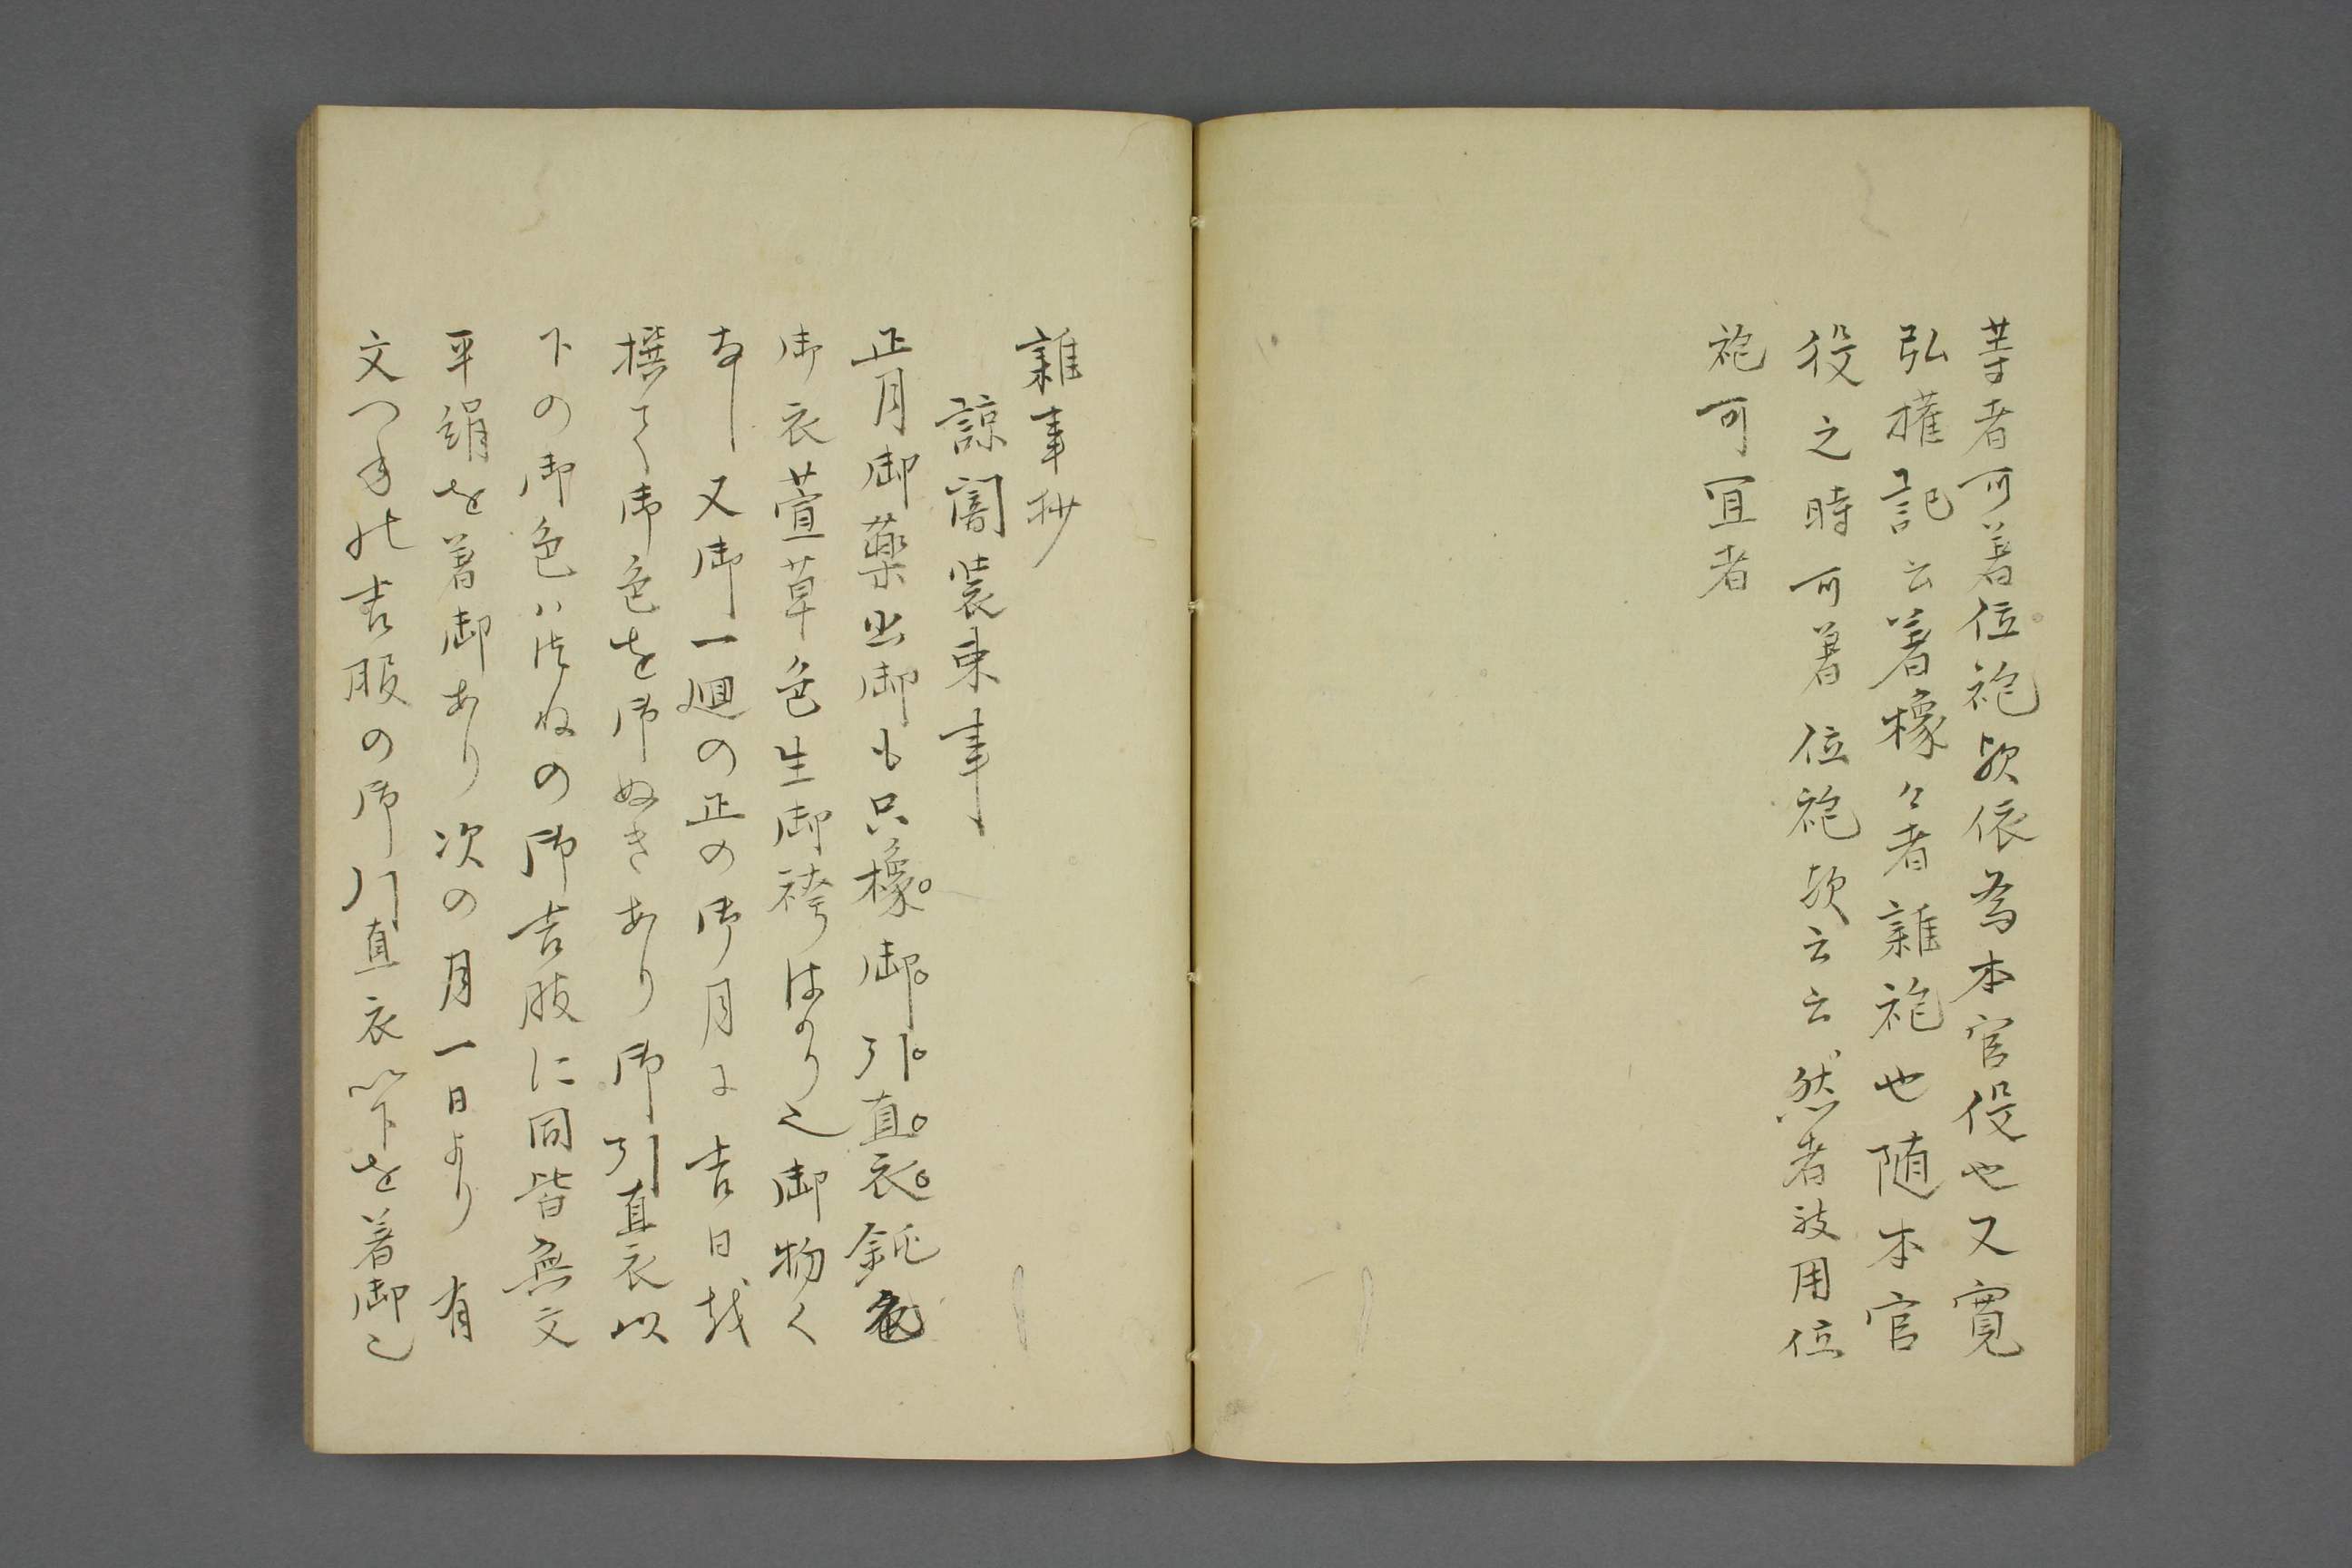 等者可着位袍歟依為本官役也又寛
弘権記云着橡々者雑袍也随本官
役之時可着位袍歟云云然者被用位
袍可宜者
雑事抄
諒闇装束事
正月御薬出御も只橡御引直衣鈍色
御衣萱草色生御袴はかり也御物く
なし又御一廻の正の御月に吉日越
撰て御色を御ぬきあり御引直衣以
下の御色ハつねの御吉服に同皆無文
平絹を着御あり次の月一日より有
文つねの吉服の御引直衣以下を着御也